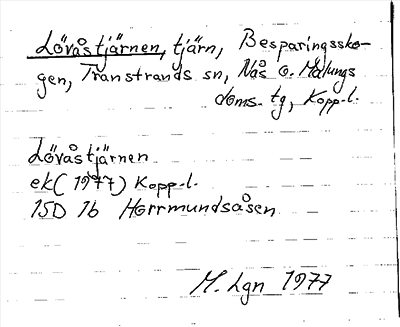 Lövåstjärnen, tjärn, Besparingssko-
gen, Transtrands sn, Nås o. Malungs
doms. tg, Kopp.l.
Lövåstjärnen
ek (1977) Kopp.l.
15D 1b Horrmundsåsen
M. Lgn 1977